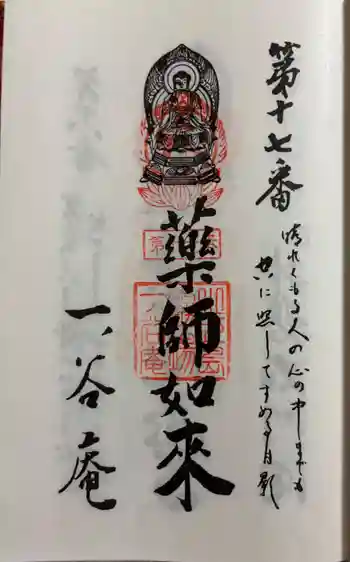 第十七番
晴れくもる人の心の中までも
空に照してすめる月影
薬師如来
一ノ谷庵